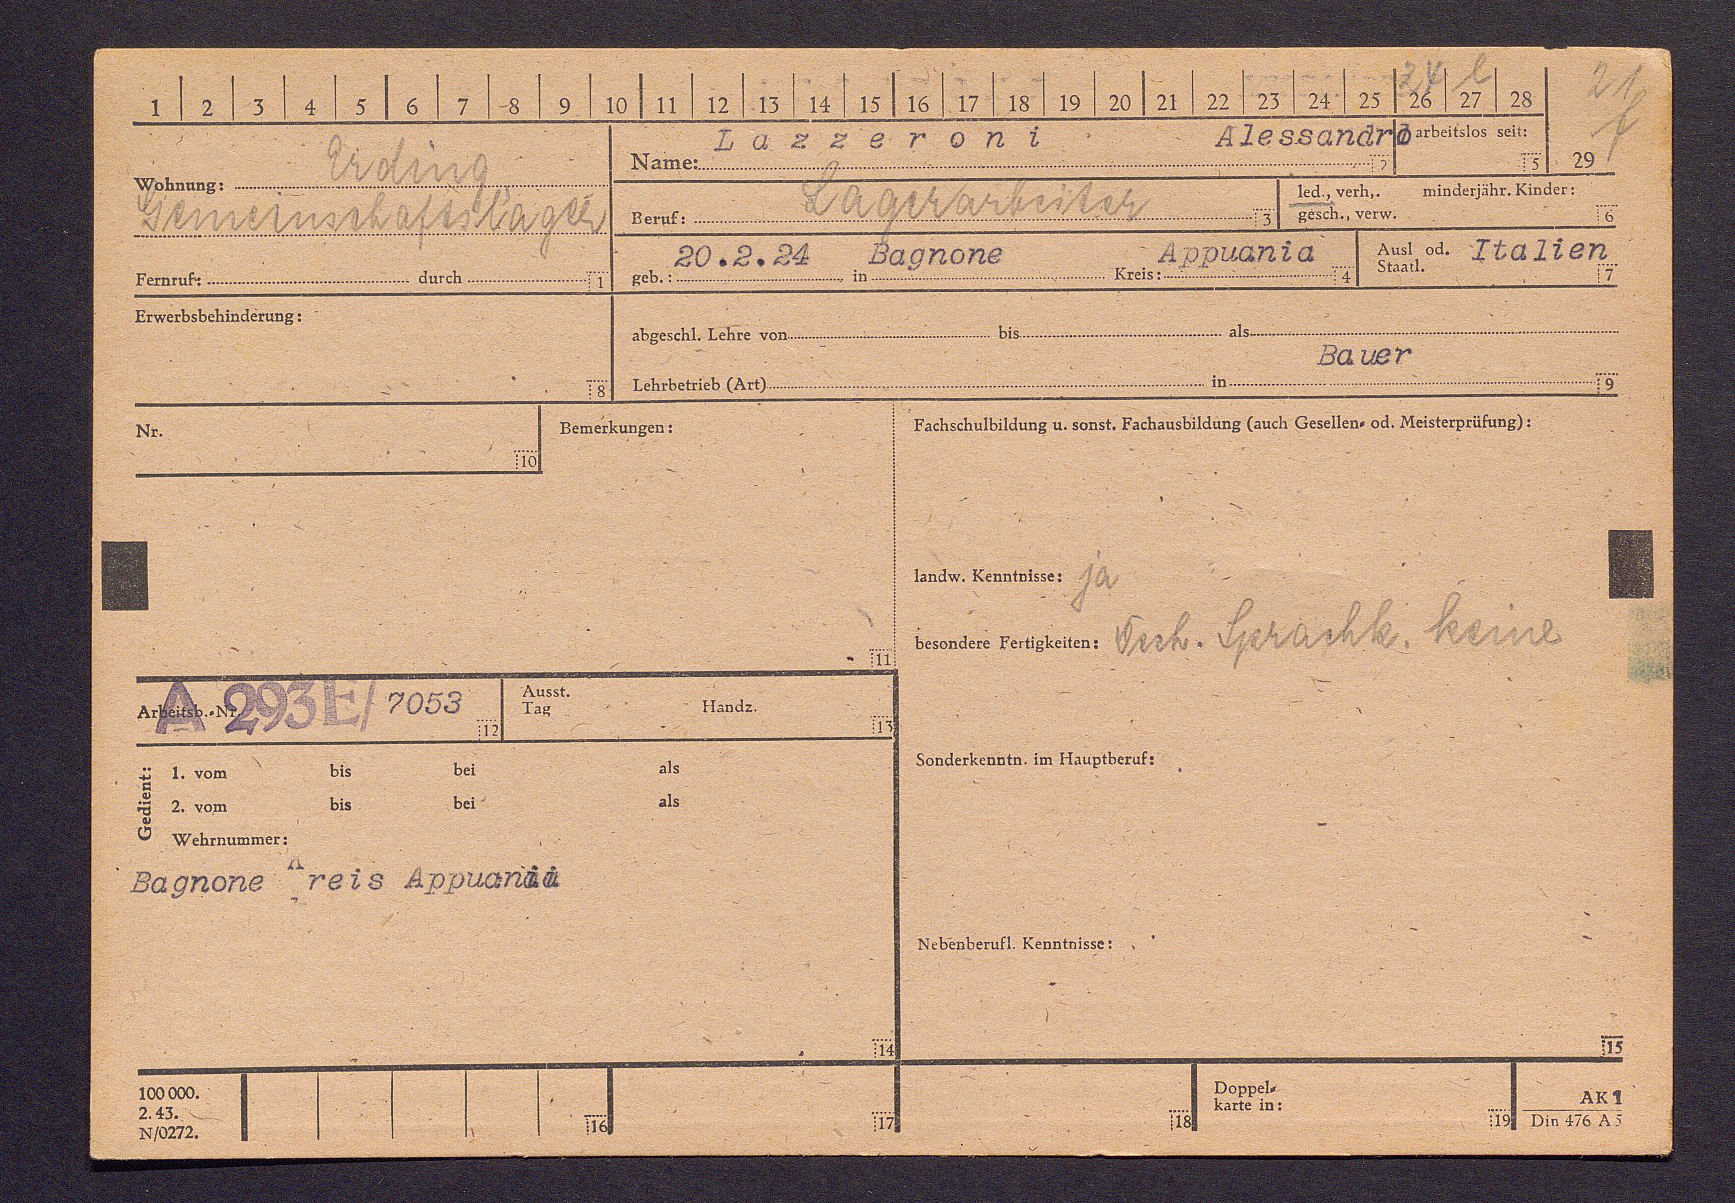 24 l
21
f
1 2 3 4 5 6 7 8 9 10 11 12 13 14 15 16 17 18 19 20 21 22 23 24 25 26 27 28
29
Wohnung: Erding
Gemeinschaftslager
Fernruf: durch 1
Name: Lazzeroni Alessandro 2
arbeitslos seit: 5
Beruf: Lagerarbeiter 3
led., verh., minderjähr. Kinder:
gesch., verw. 6
geb.: 20.2.24 in Bagnone Kreis: Appuania 4
Ausl od. Italien
Staatl. 7
Erwerbsbehinderung:
8
abgeschl. Lehre von bis als
Bauer
Lehrbetrieb (Art) in 9
Nr.
10
Bemerkungen:
11
Fachschulbildung u. sonst. Fachausbildung (auch Gesellen- od. Meisterprüfung):
landw. Kenntnisse: ja
besondere Fertigkeiten: Dtsch. Sprachk. keine
Sonderkenntn. im Hauptberuf:
Nebenberufl. Kenntnisse:
15
Arbeitsb.-Nr. A 293E/ 7053 12
Ausst.
Tag Handz. 13
Gedient:
1. vom bis bei als
2. vom bis bei als
Wehrnummer:
Bagnone Kreis Appuania
14
100 000.
2. 43.
N/0272.
16
17
18
Doppel-
karte in: 19
AK 1
Din 476 A 5